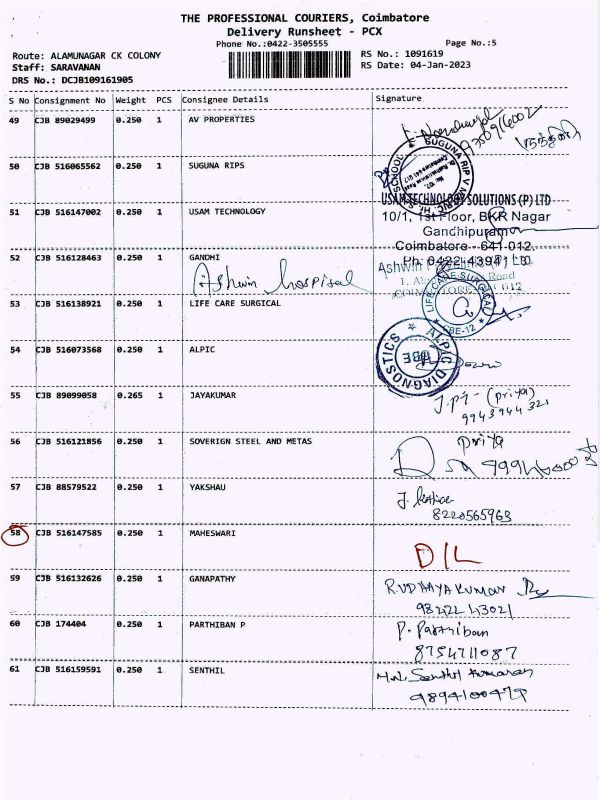 THE PROFESSIONAL COURIERS, Coimbatore
Delivery Runsheet - PCX
Phone No.:0422-3505555
Page No.:5
Route: ALAMUNAGAR CK COLONY
RS No.: 1091619
Staff: SARAVANAN
RS Date: 04-Jan-2023
DRS No.: DCJB109161905
S No Consignment No Weight PCS Consignee Details Signature
49 CJB 89029499 0.250 1 AV PROPERTIES
50 CJB 516065562 0.250 1 SUGUNA RIPS
SUGUNA RIP V MATRIC. HR. SEC SCHOOL
51 CJB 516147002 0.250 1 USAM TECHNOLOGY
USAM TECHNOLOGY SOLUTIONS (P) LTD
10/1, 1st Floor, BKR Nagar
Gandhipuram
Coimbatore - 641 012.
Ph: 0422-43941
52 CJB 516128463 0.250 1 GANDHI
Ashwin hospital
Ashwin
53 CJB 516138921 0.250 1 LIFE CARE SURGICAL
LIFE CARE SURGICAL
CBE-12
54 CJB 516073568 0.250 1 ALPIC
ALPIC DIAGNOSTICS
CBE
55 CJB 89099058 0.265 1 JAYAKUMAR
(priya)
9943944321
56 CJB 516121856 0.250 1 SOVERIGN STEEL AND METAS
priya
57 CJB 88579522 0.250 1 YAKSHAU
8220565963
58 CJB 516147585 0.250 1 MAHESWARI
D/L
59 CJB 516132626 0.250 1 GANAPATHY
R.UDHAYAKUMAR
98422 43021
60 CJB 174404 0.250 1 PARTHIBAN P
P. Parthiban
8754711087
61 CJB 516159591 0.250 1 SENTHIL
Senthil kumaran
9894100479